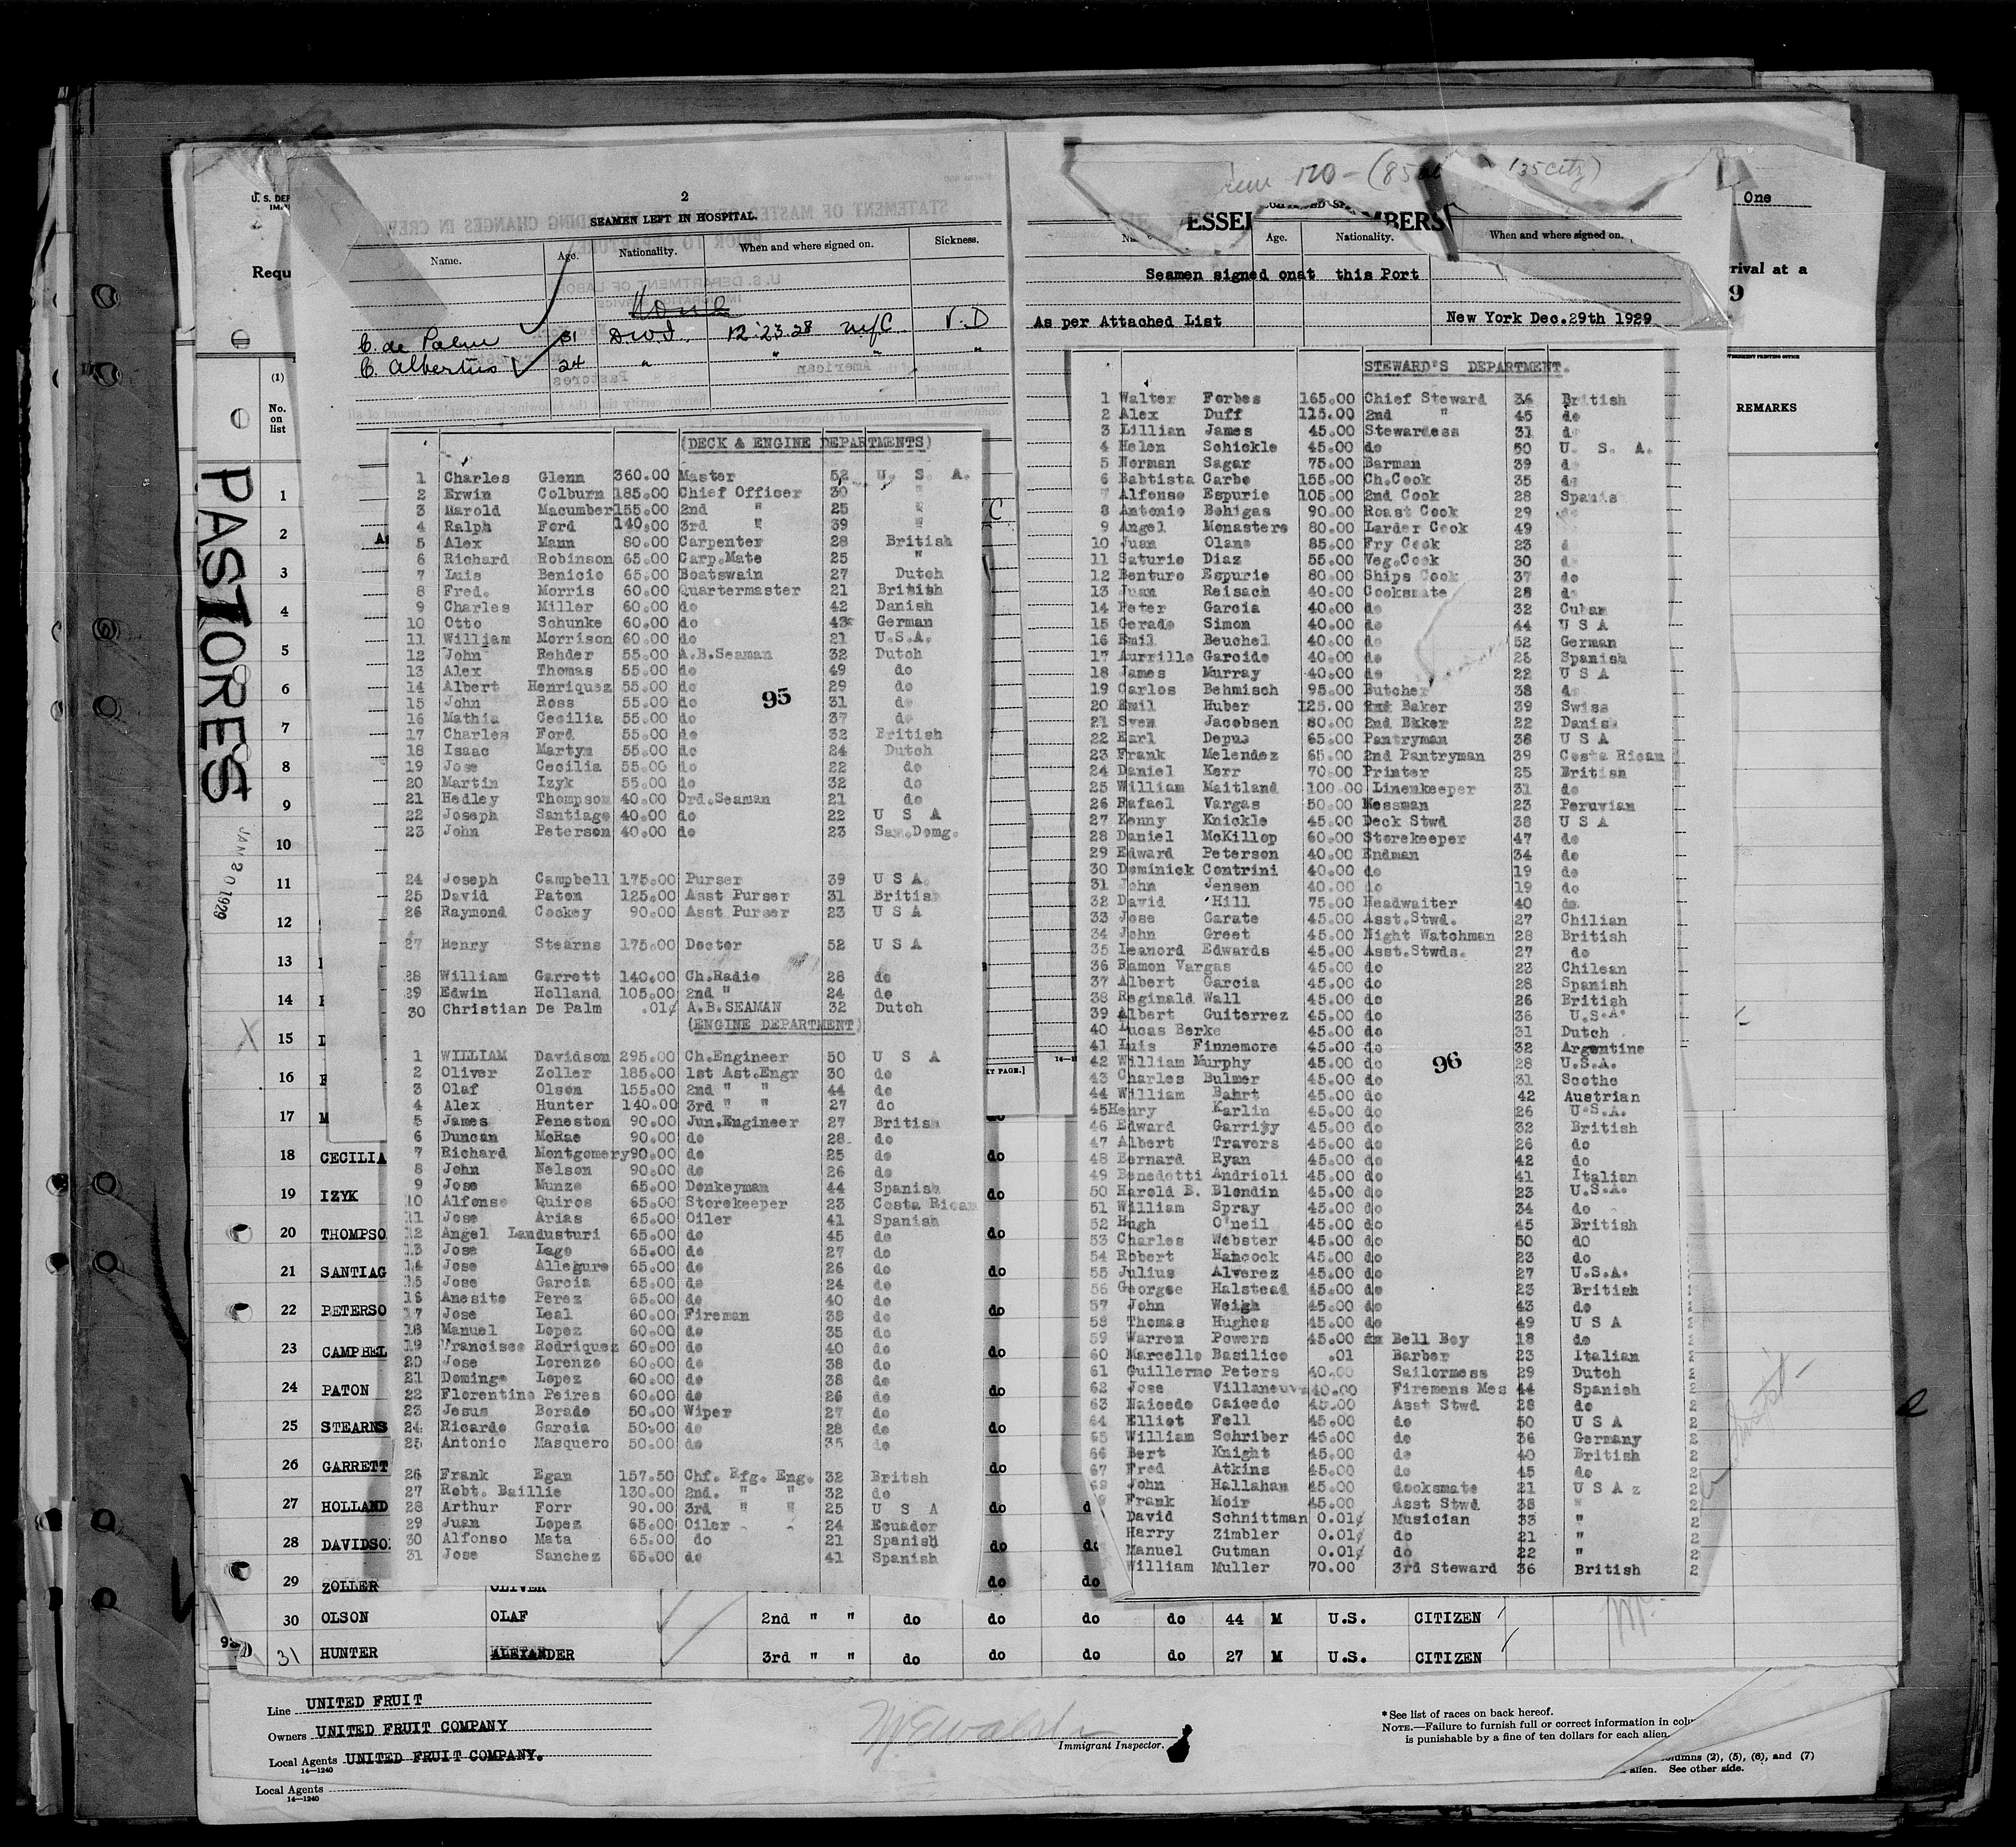 2
SEAMEN LEFT IN HOSPITAL.
Name. Age. Nationality. When and where signed on. Sickness.
C. de Palm 31 D.W.I. 12.23.28 N.Y.C. V.D
C. Albertus 24 " " " "
(DECK & ENGINE DEPARTMENTS)
1 Charles Glenn 360.00 Master 52 U. S. A.
2 Erwin Colburn 185.00 Chief Officer 30 "
3 Harold Macumber 155.00 2nd " 25 "
4 Ralph Ford 140.00 3rd " 39 "
5 Alex Mann 80.00 Carpenter 28 British
6 Richard Robinson 65.00 Carp.Mate 25 "
7 Luis Benicio 65.00 Boatswain 27 Dutch
8 Fred. Morris 60.00 Quartermaster 21 British
9 Charles Miller 60.00 do 42 Danish
10 Otto Schunke 60.00 do 43 German
11 William Morrison 60.00 do 21 U.S.A.
12 John Rehder 55.00 A.B.Seaman 32 Dutch
13 Alex Thomas 55.00 do 49 do
14 Albert Henriquez 55.00 do 29 do
15 John Ross 55.00 do 31 do
95
16 Mathia Cecilia 55.00 do 37 do
17 Charles Ford 55.00 do 32 British
18 Isaac Martyn 55.00 do 24 Dutch
19 Jose Cecilia 55.00 do 22 do
20 Martin Izyk 55.00 do 32 do
21 Hedley Thompson 40.00 Ord.Seaman 21 do
22 Joseph Santiago 40.00 do 22 U S A
23 John Peterson 40.00 do 23 Sam.Domg.
24 Joseph Campbell 175.00 Purser 39 U S A.
25 David Paton 125.00 Asst Purser 31 British
26 Raymond Cookey 90.00 Asst Purser 23 U S A
27 Henry Stearns 175.00 Doctor 52 U S A
28 William Garrett 140.00 Ch.Radio 28 do
29 Edwin Holland 105.00 2nd " 24 do
30 Christian De Palm .01¢ A.B.SEAMAN 32 Dutch
(ENGINE DEPARTMENT)
1 WILLIAM Davidson 295.00 Ch.Engineer 50 U S A
2 Oliver Zoller 185.00 1st Ast.Engr 30 do
3 Olaf Olson 155.00 2nd " " 44 do
4 Alex Hunter 140.00 3rd " " 27 do
5 James Peneston 90.00 Jun.Engineer 27 British
6 Duncan McRae 90.00 do 28 do
7 Richard Montgomery 90.00 do 25 do
8 John Nelson 90.00 do 26 do
9 Jose Munze 65.00 Donkeyman 44 Spanish
10 Alfonso Quiros 65.00 Storekeeper 23 Costa Rican
11 Jose Arias 65.00 Oiler 41 Spanish
12 Angel Landusturi 65.00 do 45 do
13 Jose Lage 65.00 do 27 do
14 Jose Allegure 65.00 do 26 do
15 Jose Garcia 65.00 do 24 do
16 Anesito Perez 65.00 do 40 do
17 Jose Leal 60.00 Fireman 38 do
18 Manuel Lopez 60.00 do 35 do
19 Francisco Rodriquez 60.00 do 40 do
20 Jose Lorenzo 60.00 do 38 do
21 Domingo Lopez 60.00 do 38 do
22 Florentino Peires 60.00 do 26 do
23 Jesus Borado 50.00 Wiper 27 do
24 Ricardo Garcia 50.00 do 28 do
25 Antonio Masquero 50.00 do 35 do
26 Frank Egan 157.50 Chf. Rfg. Eng. 32 Britsh
27 Robt. Baillie 130.00 2nd. " " 32 do
28 Arthur Forr 90.00 3rd " " 25 U S A
29 Juan Lopez 65.00 Oiler 24 Ecuador
30 Alfonso Mata 65.00 do 21 Spanish
31 Jose Sanchez 65.00 do 41 Spanish
120 - (85 135 City)
ESSEL MBERS
Age. Nationality. When and where signed on.
Seamen signed onat this Port
As per Attached List New York Dec.29th 1929
STEWARD'S DEPARTMENT.
1 Walter Forbes 165.00 Chief Steward 36 British
2 Alex Duff 115.00 2nd " 45 do
3 Lillian James 45.00 Stewardess 31 do
4 Helen Schickle 45.00 do 50 U. S. A.
5 Norman Sagar 75.00 Barman 39 do
6 Babtista Carbo 155.00 Ch.Cook 35 do
7 Alfonso Espurie 105.00 2nd Cook 28 Spanis
8 Antonio Bohigas 90.00 Roast Cook 29 do
9 Angel Monastero 80.00 Larder Cook 49
10 Juan Olano 85.00 Fry Cook 23 d
11 Saturio Diaz 55.00 Veg.Cook 30 do
12 Benturo Espurie 80.00 Ships Cook 37 do
13 Juan Reisach 40.00 Cooksmate 28 do
14 Peter Garcia 40.00 do 32 Cuban
15 Gerado Simon 40.00 do 44 U S A
16 Emil Beuchel 40.00 do 52 German
17 Aurrille Garcide 40.00 do 26 Spanish
18 James Murray 40.00 do 22 U S A
19 Carlos Behmisch 95.00 Butcher 38 do
20 Emil Huber 125.00 2nd Baker 39 Swiss
21 Sven Jacobsen 80.00 2nd Bkker 22 Danish
22 Earl Depue 65.00 Pantryman 38 U S A
23 Frank Melendez 65.00 2nd Pantryman 39 Costa Rican
24 Daniel Kerr 70.00 Printer 25 British
25 William Maitland 100.00 Linenkeeper 31 do
26 Rafael Vargas 50.00 Messman 23 Peruvian
27 Kenny Knickle 45.00 Deck Stwd 38 U S A
28 Daniel McKillop 60.00 Storekeeper 47 do
29 Edward Peterson 40.00 Endman 34 do
30 Dominick Contrini 40.00 do 19 do
31 John Jensen 40.00 do 19 do
32 David Hill 75.00 Headwaiter 40 do
33 Jose Garate 45.00 Asst.Stwd. 27 Chilian
34 John Greet 45.00 Night Watchman 28 British
35 Leanord Edwards 45.00 Asst.Stwds. 27 do
36 Ramon Vargas 45.00 do 23 Chilean
37 Albert Garcia 45.00 do 28 Spanish
38 Reginald Wall 45.00 do 26 British
39 Albert Guiterrez 45.00 do 36 U.S.A.
40 Lucas Berke 45.00 do 31 Dutch
41 Luis Finnemore 45.00 do 32 Argentine
96
42 William Murphy 45.00 do 28 U.S.A.
43 Charles Bulmer 45.00 do 31 Scotho
44 William Bahrt 45.00 do 42 Austrian
45 Henry Karlin 45.00 do 26 U.S.A.
46 Edward Garrity 45.00 do 32 British
47 Albert Travers 45.00 do 26 do
48 Bernard Ryan 45.00 do 42 do
49 Benedetti Andrioli 45.00 do 41 Italian
50 Harold B. Blondin 45.00 do 23 U.S.A.
51 William Spray 45.00 do 34 do
52 Hugh O'neil 45.00 do 45 British
53 Charles Webster 45.00 do 50 dO
54 Robert Hancock 45.00 do 23 do
55 Julius Alverez 45.00 do 27 U.S.A.
56 Georgee Halstead 45.00 do 23 British
57 John Weigh 45.00 do 43 do
58 Thomas Hughes 45.00 do 49 U S A
59 Warren Powers 45.00 Bell Boy 18 do
60 Marcello Basilico .01 Barber 23 Italian
61 Guillermo Peters 40.00 Sailormess 29 Dutch
62 Jose Villaneuva 40.00 Firemens Mes 44 Spanish
63 Naicedo Caicedo 45.00 Asst Stwd 28 do
64 Elliot Fell 45.00 do 50 U S A
65 William Schriber 45.00 do 36 Germany
66 Bert Knight 45.00 do 40 British
67 Fred Atkins 45.00 do 45 do
John Hallahan 45.00 Cooksmate 21 U S A z
Frank Moir 45.00 Asst Stwd 38 "
David Schnittman 0.01¢ Musician 33 "
Harry Zimbler 0.01¢ do 21 "
Manuel Gutman 0.01¢ do 22 "
William Muller 70.00 3rd Steward 36 British
U. S. DEP
Requ
One
rival at a
9
(1)
No. on list
REMARKS
PASTORES
JAN 20 1929
1
2
3
4
5
6
7
8
9
10
11
12
13
14
15
16
17 M
18 CECILIA do
19 IZYK do
20 THOMPSO do
21 SANTIAG do
22 PETERSO do
23 CAMPBEL do
24 PATON do
25 STEARNS do
26 GARRETT do
27 HOLLAND do
28 DAVIDSO do
29 ZOLLER OLIVER do do
30 OLSON OLAF 2nd " " do do do do 44 M U.S. CITIZEN
31 HUNTER ALEXANDER 3rd " " do do do do 27 M U.S. CITIZEN
Line UNITED FRUIT
Owners UNITED FRUIT COMPANY
Local Agents UNITED FRUIT COMPANY.
14—1240
Local Agents
14—1240
Immigrant Inspector.
*See list of races on back hereof.
NOTE.—Failure to furnish full or correct information in colu
is punishable by a fine of ten dollars for each alien.
olumns (2), (5), (6), and (7)
alien. See other side.